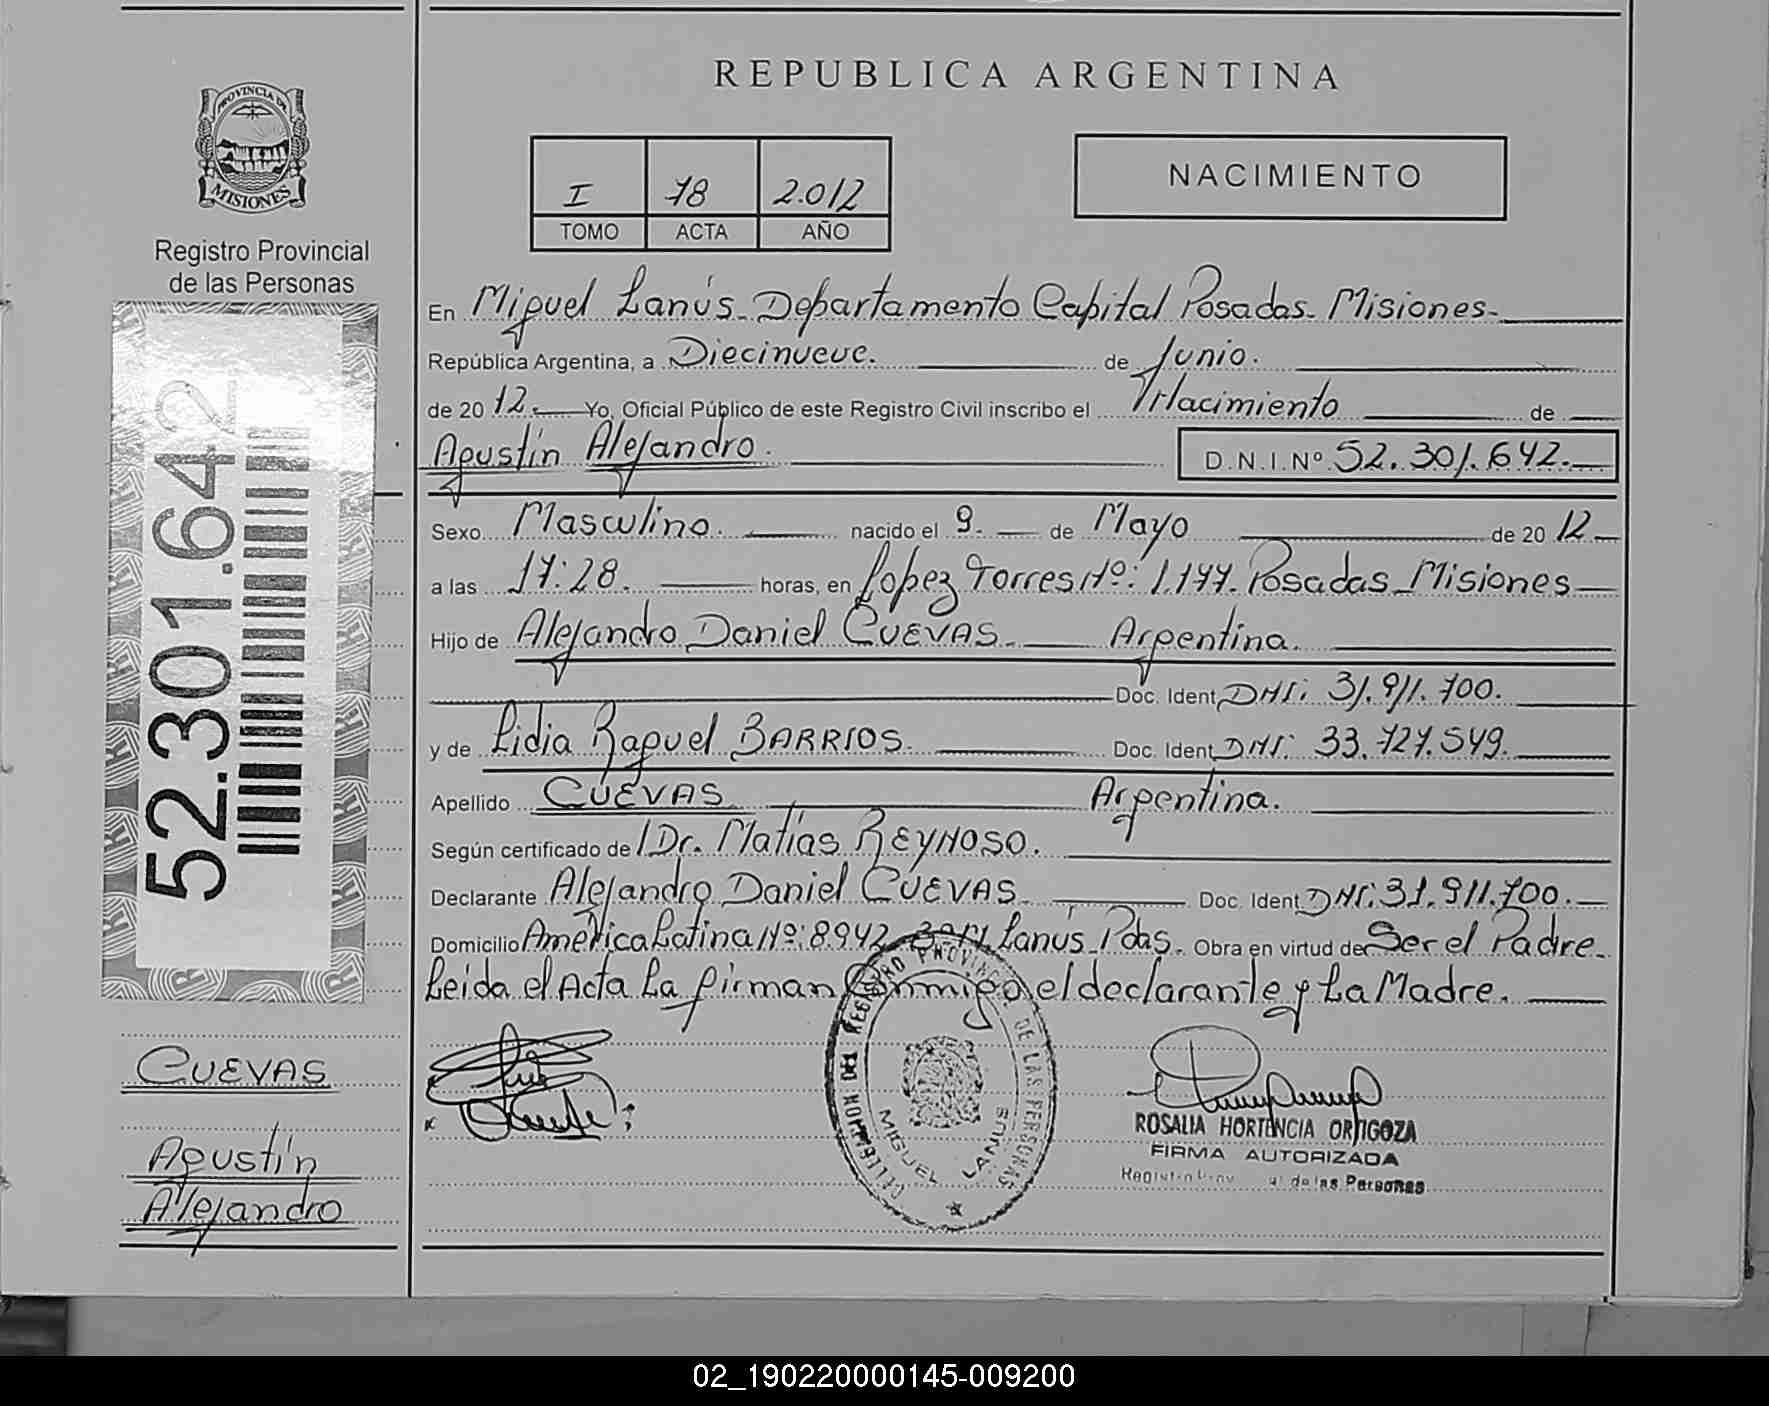 PROVINCIA DE
MISIONES
Registro Provincial
de las Personas
52.301.642
CUEVAS
Agustín
Alejandro
REPUBLICA ARGENTINA
I 78 2.012
TOMO ACTA AÑO
NACIMIENTO
En Miguel Lanús. Departamento Capital Posadas. Misiones.
República Argentina, a Diecinueve. de Junio.
de 20 12. Yo, Oficial Público de este Registro Civil inscribo el Nacimiento de
Agustín Alejandro. D.N.I.Nº 52.301.642.
Sexo Masculino. nacido el 9. de Mayo de 20 12
a las 17:28. horas, en Lopez Torres Nº: 1.177. Posadas Misiones
Hijo de Alejandro Daniel CUEVAS. Argentina.
Doc. Ident. DNI: 31.911.700.
y de Lidia Raquel BARRIOS. Doc. Ident. DNI: 33.727.549.
Apellido CUEVAS Argentina.
Según certificado de Dr. Matías REYNOSO.
Declarante Alejandro Daniel CUEVAS. Doc. Ident. DNI: 31.911.700.
Domicilio América Latina Nº: 8942 Lanús Pdas. Obra en virtud de Ser el Padre.
Leida el Acta La firman Conmigo el declarante y La Madre.
REGISTRO PROVINCIAL DE LAS PERSONAS
MIGUEL LANUS
ROSALIA HORTENCIA ORTIGOZA
FIRMA AUTORIZADA
de las Personas
02_190220000145-009200